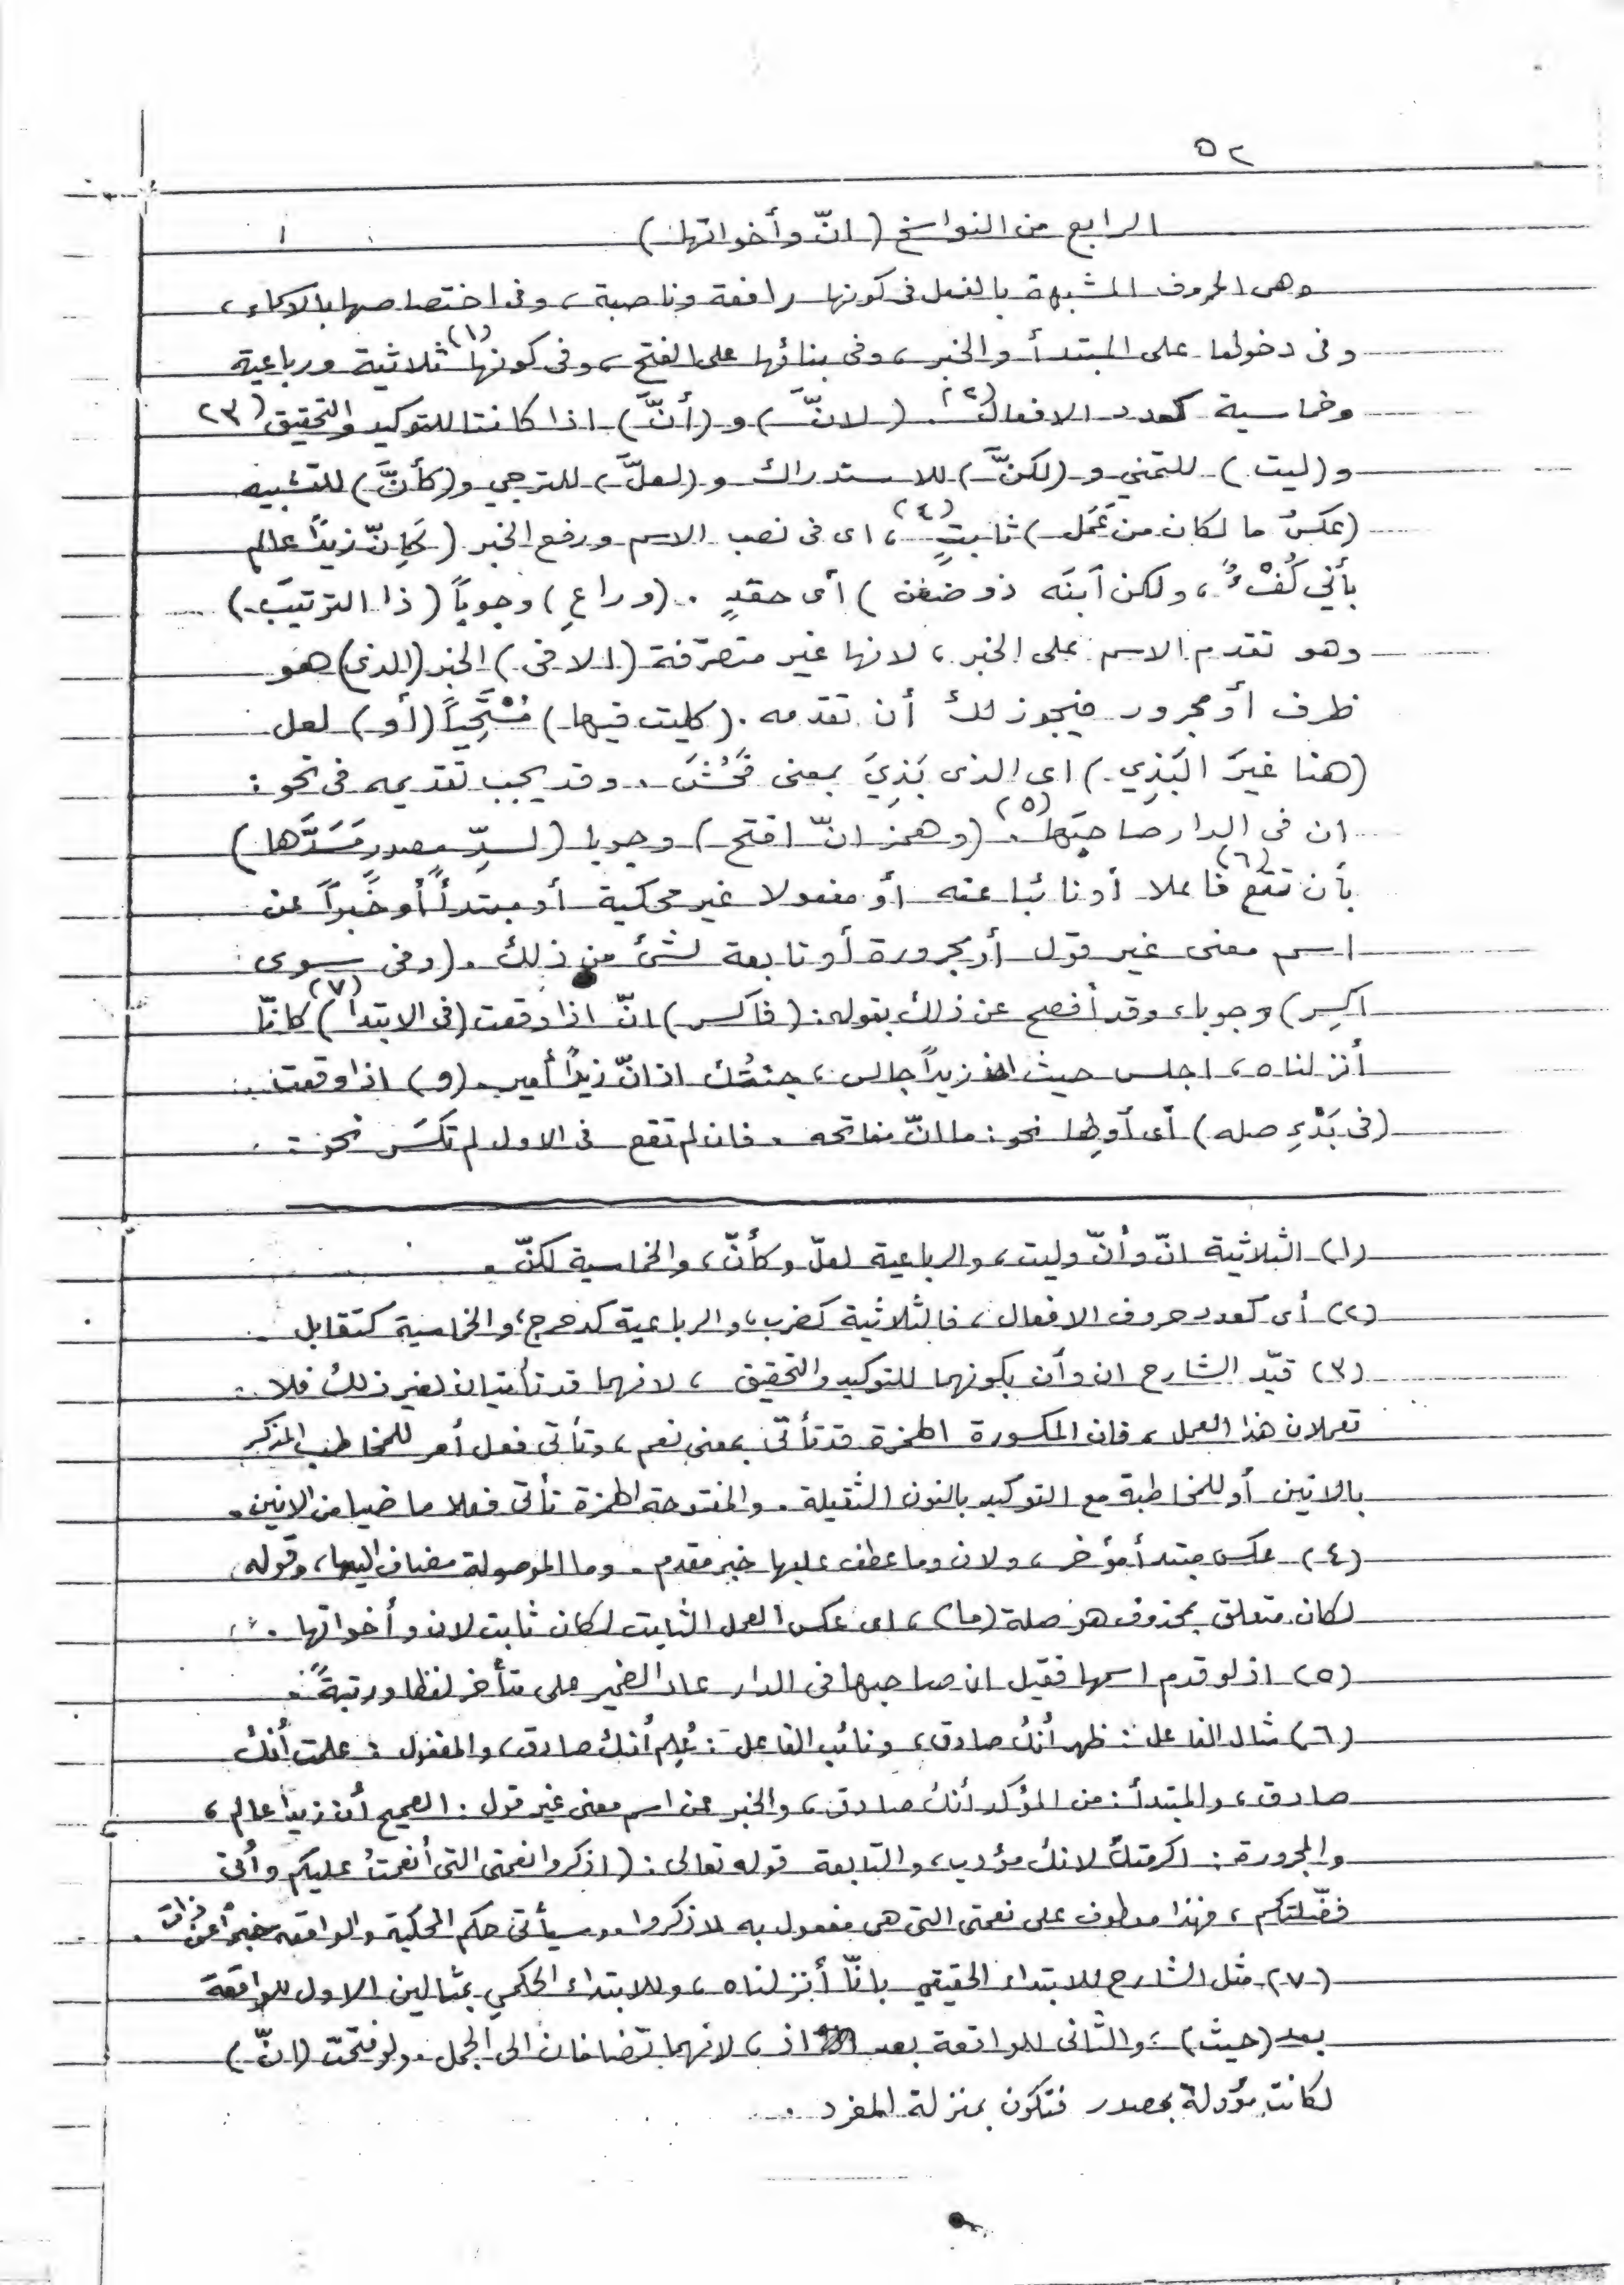 ٥٢
الرابع من النواسخ (انّ وأخواتها)
وهى الحروف المشبهة بالفعل فى كونها رافعة وناصبة، وفى اختصاصها بالاسماء،
وفى دخولها على المبتدأ والخبر، وفى بنائها على الفتح، وفى كونها (١) ثلاثية ورباعية
وخماسية كعدد الافعال (٢). (لانَّ) و (أنَّ) اذا كانتا للتوكيد والتحقيق (٣)
و (ليت) للتمني و (لكنَّ) للاستدراك و (لعلَّ) للترجي و (كأنَّ) للتشبيه
(عكسُ ما لكان من عَمَل) ثابتٍ (٤)، اى فى نصب الاسم ورفع الخبر (كَإنّ زيداً عالم
بأني كُفْءٌ، ولكن ابنَه ذو ضغن) أى حقدٍ. (وراعِ) وجوباً (ذا الترتيبَ)
وهو تقدم الاسم على الخبر، لانها غير متصرّفة (الا فى) الخبر (الذى) هو
ظرف أو مجرور فيجوز لك أن تقدمه. (كليت فيها) مُسْتَحِياً (أو) لعل
(هنا غيرَ البَذِي) اى الذى بَذِيَ بمعنى فَحُشَ. وقد يجب تقديمه فى نحو:
ان فى الدار صاحبَها (٥). (وهمز انّ افتح) وجوبا (لسدِّ مصدرٍ مَسَدَّها)
بأن تقع (٦) فاعلا أو نائبا عنه أو مفعولا غير محكية أو مبتدأً أو خبراً عن
اسم معنى غير قول أو مجرورة أو تابعة لشئ من ذلك. (وفى سوى
اكسِر) وجوبا، وقد أفصح عن ذلك بقوله: (فاكسر) انّ اذا وقعت (فى الابتدا) (٧) كانّا
أنزلناه، اجلس حيث ان زيداً جالس، جئتك اذ انّ زيداً أمير. (و) اذا وقعت
(فى بَدْءِ صله) أى أولها نحو: ما انّ مفاتحه. فان لم تقع فى الاول لم تكسَر نحو:
(١) الثلاثية انّ وأنّ وليت، والرباعية لعلّ وكأنّ، والخماسية لكنّ.
(٢) أى كعدد حروف الافعال، فالثلاثية كضرب، والرباعية كدحرج، والخماسية كتقابل.
(٣) قيّد الشارح ان وأن بكونهما للتوكيد والتحقيق، لانهما قد تأتيان لغير ذلك فلا
تعملان هذا العمل، فان المكسورة الهمزة قد تأتى بمعنى نعم، وتأتى فعل أمر للمخاطب المذكر
بالانين أو للمخاطبة مع التوكيد بالنون الثقيلة. والمفتوحة الهمزة تأتى فعلا ماضيا من الانين.
(٤) عكس مبتدأ مؤخر، ولان وما عطف عليها خبر مقدم. وما الموصولة مضاف اليها، وقوله
لكان متعلق بمحذوف هو صلة (ما)، اى عكس العمل الثابت لكان ثابت لان وأخواتها.
(٥) اذ لو قدم اسمها فقيل ان صاحبها فى الدار عاد الضمير على متأخر لفظا ورتبةً.
(٦) مثال الفاعل: ظهر أنك صادق، ونائب الفاعل: عُلِم أنك صادق، والمفعول: علمت أنك
صادق، والمبتدأ: من المؤكد أنك صادق، والخبر عن اسم معنى غير قول: الصحيح أن زيدا عالم،
والمجرورة: اكرمتك لانك مؤدب، والتابعة قوله تعالى: (اذكروا نعمتى التى أنعمتُ عليكم وأنى
فضّلتكم، فهذا معطوف على نعمتى التى هى مفعول به لاذكروا. وسيأتى حكم المحكية والواقعه خبراً عن ذات.
(٧) مثل الشارح للابتداء الحقيقي بانّا أنزلناه، وللابتداء الحكمي بمثالين الاول للواقعة
بعد (حيث)، والثانى للواقعة بعد اذ، لانهما تضافان الى الجمل. ولو فتحت (انّ)
لكانت مؤولة بمصدر فتكون بمنزلة المفرد.